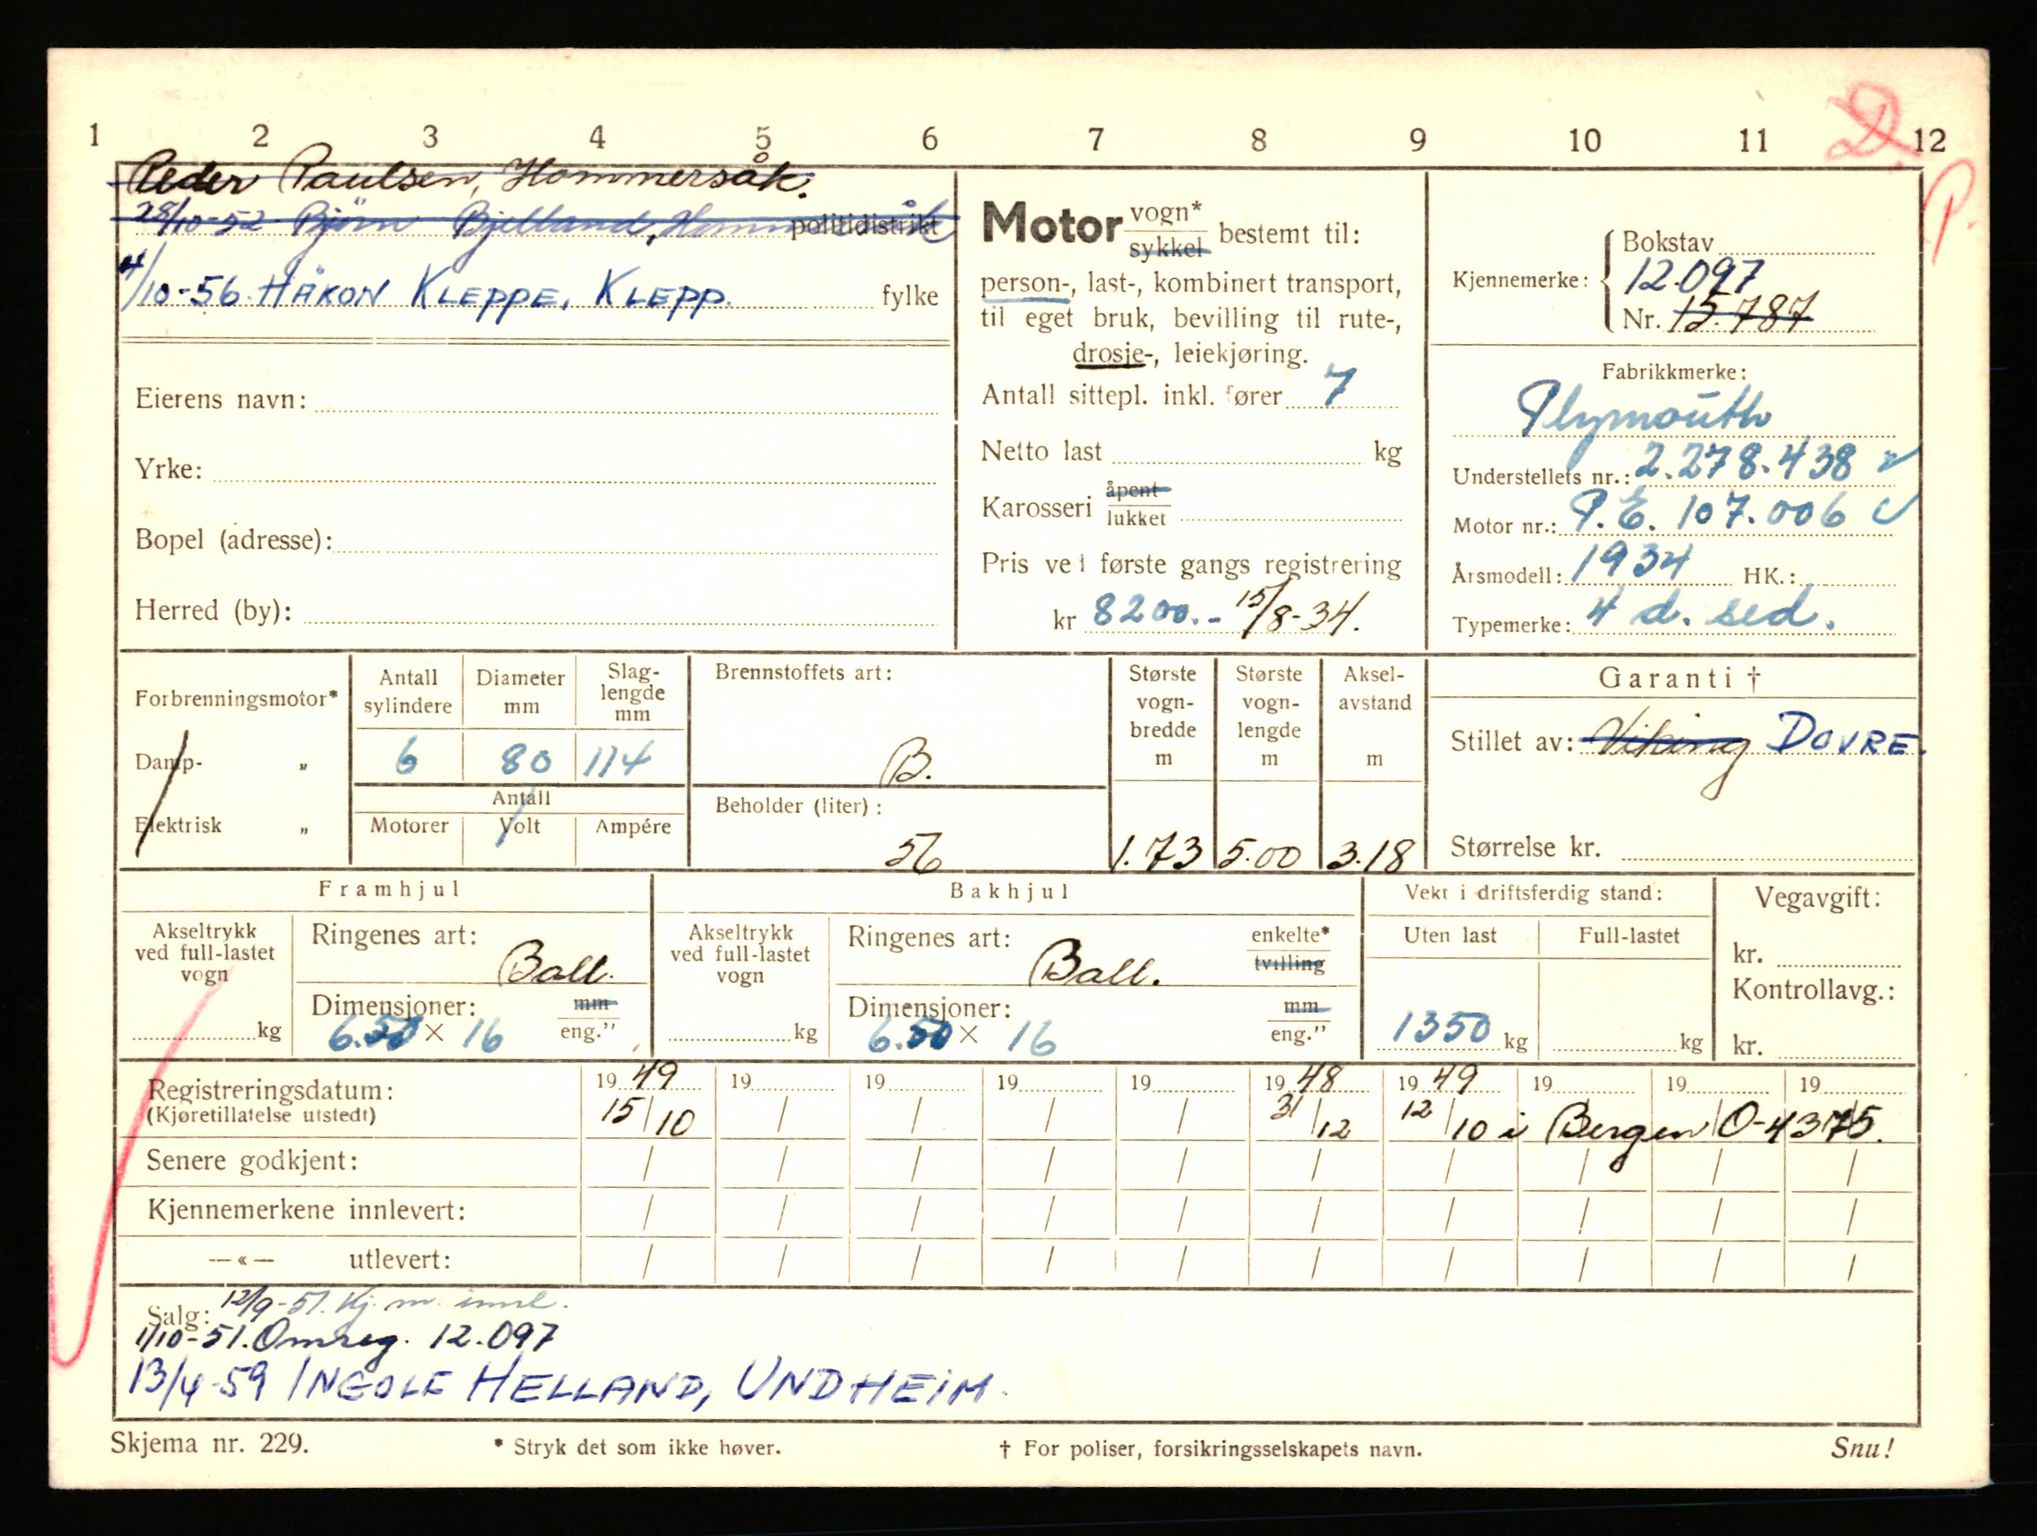 1 2 3 4 5 6 7 8 9 10 11 12
D.
P.
Peder Paulsen, Hommersåk.
28/10-52 Bjørn Bjelland, politidistrikt
4/10-56. HÅKON KLEPPE, KLEPP. fylke
Eierens navn:
Yrke:
Bopel (adresse):
Herred (by):
Motor vogn* sykkel bestemt til:
person-, last-, kombinert transport,
til eget bruk, bevilling til rute-,
drosje-, leiekjøring.
Antall sittepl. inkl. fører 7
Netto last kg
Karosseri åpent lukket
Pris ved første gangs registrering
kr 8200.- 15/8-34.
Kjennemerke: Bokstav
12.097
Nr. 15.787
Fabrikkmerke:
Plymouth
Understellets nr.: 2.278.438
Motor nr.: P.E. 107.006
Årsmodell: 1934 HK.:
Typemerke: 4 d. sed.
Forbrenningsmotor*
Damp- „
Elektrisk „
Antall sylindere
Diameter mm
Slag-lengde mm
6 80 114
Antall
Motorer Volt Ampére
Brennstoffets art:
B.
Beholder (liter):
56
Største vogn-bredde m
1.73
Største vogn-lengde m
5.00
Aksel-avstand m
3.18
Garanti †
Stillet av: Viking DOVRE.
Størrelse kr.
Framhjul
Akseltrykk ved full-lastet vogn
kg
Ringenes art:
Ball.
Dimensjoner: mm
6.50 × 16 eng.”
Bakhjul
Akseltrykk ved full-lastet vogn
kg
Ringenes art: enkelte* tvilling
Ball.
Dimensjoner: mm
6.50 × 16 eng.”
Vekt i driftsferdig stand:
Uten last Full-lastet
1350 kg kg
Vegavgift:
kr.
Kontrollavg.:
kr.
Registreringsdatum: 1949 19 19 19 19 1948 1949 19 19 19
(Kjøretillatelse utstedt) 15/10 / / / / 31/12 12/10 i Bergen O-4375.
Senere godkjent: / / / / / / / / / /
Kjennemerkene innlevert: / / / / / / / / / /
—«— utlevert: / / / / / / / / / /
Salg: 12/9-51. Kj.m. innl.
1/10-51. Omreg. 12.097
13/4-59 INGOLF HELLAND, UNDHEIM.
Skjema nr. 229. * Stryk det som ikke høver. † For poliser, forsikringsselskapets navn. Snu!